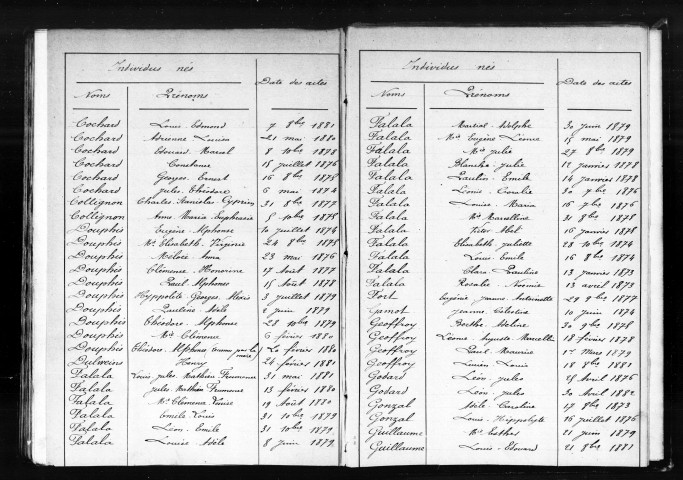 Individus nés
Noms Prénoms Date des actes
Cochard Louis Edmond 7 8bre 1881
Cochard Adrienne Louisa 21 mai 1880
Cochard Edouard Marcel 8 10bre 1878
Cochard Constance 15 juillet 1876
Cochard Georges Ernest 16 8bre 1875
Cochard Jules Théodore 6 mai 1874
Collignon Charles Stanislas Cyprien 31 8bre 1877
Collignon Anna Maria Euphrasie 5 10bre 1875
Douphis Eugène Alphonse 10 juillet 1874
Douphis Mie Elisabeth Virginie 24 8bre 1875
Douphis Anna 23 mai 1876
Douphis Clémence Honorine 17 Août 1877
Douphis Paul Alphonse 15 Août 1878
Douphis Hyppolite Georges Alexis 3 juillet 1879
Douphis Pauline Adèle 2 juin 1879
Douphis Théodore Alphonse 28 10bre 1879
Douphis Mie Clémence 6 février 1880
Douphis Théodore Alphonse reconnu par la mère 20 février 1880
Dulmeins Henry 24 février 1881
Falala Louis Jules Mathieu 31 mai 1881
Falala Jules Mathieu 13 février 1880
Falala Mie Clémence 19 Août 1880
Falala Emile Louis 31 10bre 1879
Falala Léon Emile 31 10bre 1879
Falala Louise Adèle 8 juin 1879
Individus nés
Noms Prénoms Date des actes
Falala Martial Adolphe 30 juin 1879
Falala Mie Eugène Léonie 15 mai 1879
Falala Mie Julie 27 8bre 1879
Falala Blanche Julie 12 janvier 1878
Falala Paulin Emile 14 janvier 1878
Falala Léonie Coralie 30 7bre 1876
Falala Louise Maria 16 7bre 1876
Falala Mie Marcelline 31 8bre 1878
Falala Victor Abel 16 janvier 1878
Falala Elisabeth Juliette 28 10bre 1874
Falala Louis Emile 16 8bre 1874
Falala Clara Pauline 13 janvier 1873
Falala Rosalie Noémie 13 avril 1873
Fort Eugénie Jeanne Antoinette 29 9bre 1877
Ganot Jeanne Célestine 10 juin 1874
Geoffroy Berthe Adeline 30 9bre 1878
Geoffroy Léonie Auguste Marcellin 18 février 1878
Geoffroy Paul Maurice 1er Mars 1879
Geoffroy Lucien Louis 18 8bre 1881
Godard Léon Jules 25 Avril 1876
Godard Léon Jules 30 Avril 1882
Gonzal Adèle Caroline 17 8bre 1873
Gonzal Louis Hippolyte 16 juillet 1876
Guillaume Mie Esther 21 juin 1879
Guillaume Louis Edouard 21 8bre 1881